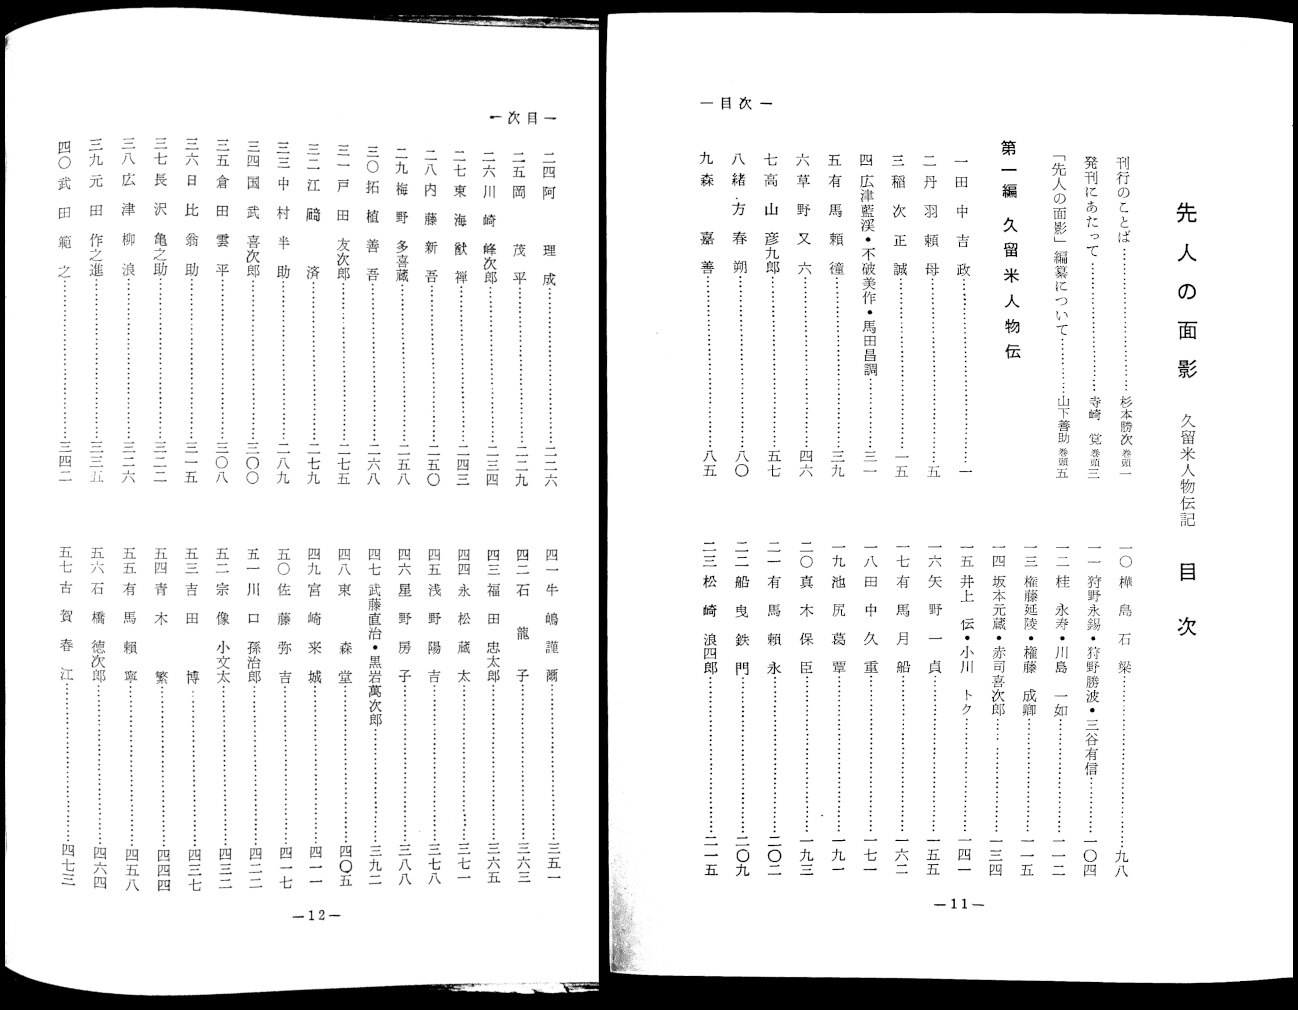 ― 目 次 ―
先人の面影 久留米人物伝記 目次
刊行のことば……杉本勝次 巻頭一
発刊にあたって……寺崎 覚 巻頭三
「先人の面影」編纂について……山下善助 巻頭五
第一編 久留米人物伝
一 田中吉政……一
二 丹羽頼母……五
三 稲次正誠……一五
四 広津藍渓・不破美作・馬田昌調……三一
五 有馬頼徸……三九
六 草野又六……四六
七 高山彦九郎……五七
八 緒方春朔……八〇
九 森 嘉善……八五
一〇 樺島石梁……九八
一一 狩野永錫・狩野勝波・三谷有信……一〇四
一二 桂 永寿・川島 一如……一一二
一三 権藤延陵・権藤 成卿……一一五
一四 坂本元蔵・赤司喜次郎……一三四
一五 井上 伝・小川 トク……一四一
一六 矢野一貞……一五五
一七 有馬月船……一六二
一八 田中久重……一七一
一九 池尻葛覃……一九一
二〇 真木保臣……一九三
二一 有馬頼永……二〇二
二二 船曳鉄門……二〇九
二三 松崎浪四郎……二一五
―11―
― 次 目 ―
二四 阿 理成……二二六
二五 岡 茂平……二二九
二六 川崎峰次郎……二三四
二七 東海猷禅……二四三
二八 内藤新吾……二五〇
二九 梅野多喜蔵……二五八
三〇 拓植善吾……二六八
三一 戸田友次郎……二七五
三二 江 済……二七九
三三 中村半助……二八九
三四 国武喜次郎……三〇〇
三五 倉田雲平……三〇八
三六 日比翁助……三一五
三七 長沢亀之助……三二二
三八 広津柳浪……三二六
三九 元田作之進……三三五
四〇 武田範之……三四二
四一 牛嶋謹爾……三五一
四二 石 龍子……三六三
四三 福田忠太郎……三六五
四四 永松蔵太……三七一
四五 浅野陽吉……三七八
四六 星野房子……三八八
四七 武藤直治・黒岩萬次郎……三九二
四八 東 森堂……四〇五
四九 宮崎来城……四一一
五〇 佐藤弥吉……四一七
五一 川口孫治郎……四二二
五二 宗像小文太……四三二
五三 吉田 博……四三七
五四 青木 繁……四四四
五五 有馬頼寧……四五八
五六 石橋徳次郎……四六四
五七 古賀春江……四七三
―12―